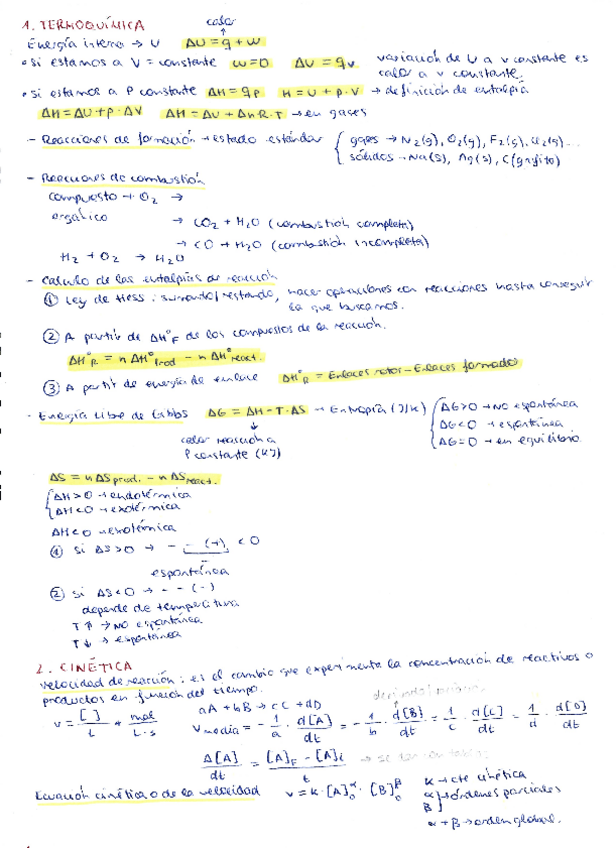 1. TERMOQUÍMICA
calor
↑
Energía interna → U   ΔU = q + w
• si estamos a V = constante   w = 0   ΔU = qv   variación de U a v constante es calor a v constante.
• si estamos a P constante   ΔH = qp   H = U + p·V → definición de entalpía
ΔH = ΔU + p·ΔV   ΔH = ΔU + Δn·R·T → en gases
- Reacciones de formación → estado estándar { gases → N2(g), O2(g), F2(g), Cl2(g)...
sólidos → Na(s), Ag(s), C(grafito)
- Reacciones de combustión
compuesto + O2 →
orgánico
→ CO2 + H2O (combustión completa)
→ CO + H2O (combustión incompleta)
H2 + O2 → H2O
- Cálculo de las entalpías de reacción
① Ley de Hess: sumando/restando, hacer operaciones con reacciones hasta conseguir la que buscamos.
② A partir de ΔH°F de los compuestos de la reacción.
ΔH°R = n ΔH°prod - n ΔH°react.
③ A partir de energía de enlace   ΔH°R = Enlaces rotos - Enlaces formados
- Energía libre de Gibbs   ΔG = ΔH - T·ΔS → Entropía (J/K) { ΔG>0 → NO espontánea
ΔG<0 → espontánea
ΔG=0 → en equilibrio
↓
calor reacción a
P constante (KJ)
ΔS = n ΔS prod. - n ΔS react.
{ ΔH>0 → endotérmica
ΔH<0 → exotérmica
ΔH<0 → exotérmica
① si ΔS>0 → - - (+) < 0
espontánea
② si ΔS<0 → - - (-)
depende de temperatura
T ↑ → NO espontánea
T ↓ → espontánea
2. CINÉTICA
velocidad de reacción: es el cambio que experimenta la concentración de reactivos o
productos en función del tiempo.
aA + bB → cC + dD
v = [ ]/t → mol/L·s   v media = - 1/a · d[A]/dt = - 1/b · d[B]/dt = 1/c · d[C]/dt = 1/d · d[D]/dt
Δ[A]/dt = [A]F - [A]i / t
Ecuación cinética o de la velocidad   v = K·[A]₀^α · [B]₀^β   K → cte cinética
α } → órdenes parciales
β
α + β → orden global.